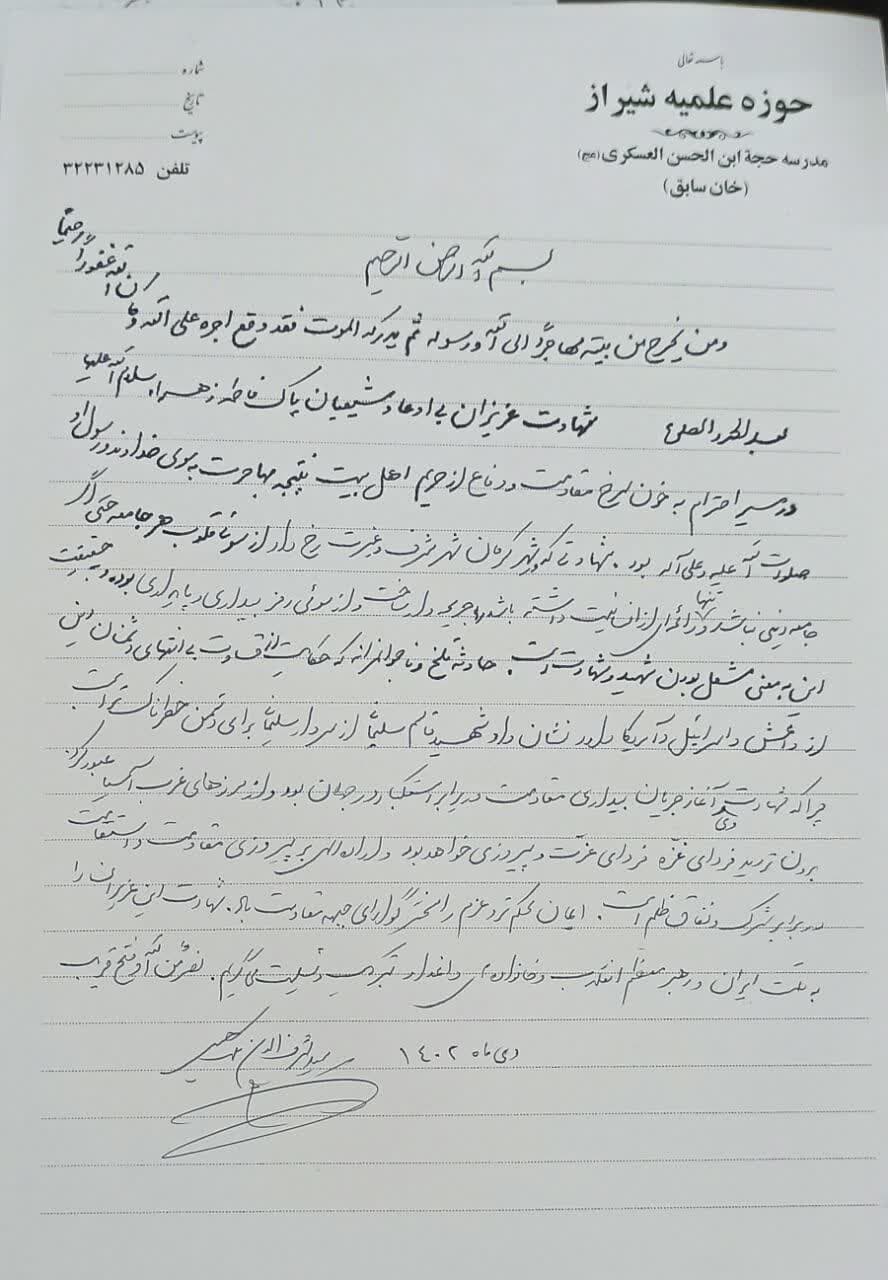 باسمه تعالی
حوزه علمیه شیراز
مدرسه حجة ابن الحسن العسکری (عج)
(خان سابق)
شماره
تاریخ
پیوست
تلفن ۳۲۲۳۱۲۸۵
بسم الله الرحمن الرحیم
ومن یخرج من بیته مهاجراً الی الله و رسوله ثم یدرکه الموت فقد وقع اجره علی الله و کان الله غفوراً رحیماً
بعد الحمد و الصلوة شهادت عزیزان بی ادعا و شیعیان پاک فاطمه زهراء سلام الله علیها
در مسیر احترام به خون سرخ مقاومت و دفاع از حریم اهل بیت نتیجه مهاجرت به سوی خداوند و رسول او
صلوات الله علیه و علی آله بود. شهادتی که در شهر کرمان شهر شرف و غیرت رخ داد از سوئی قلوب هر جامعه حتی اگر
جامعه دینی نباشد و تنها از انسانیت داشته باشد جریحه دار ساخت و از سوئی رمز بیداری و پایداری بوده و حقیقت
این به معنی مشعل بودن شهید و شهادت است. حادثه تلخ و ناجوانمردانه که حکایت از قساوت بی انتهای دشمنان دین
از داعش و اسرائیل و آمریکا دارد نشان داد شهید قاسم سلیمانی از سردار سلیمانی برای دشمن خطرناکتر است
چرا که شهادت وی آغاز جریان بیداری مقاومت در برابر استکبار در جهان بود و از مرزهای غرب آسیا عبور کرد.
بدون تردید فردای غزه فردای عزت و پیروزی خواهد بود و اراده الهی بر پیروزی مقاومت و استقامت
در برابر شرک و نفاق و ظلم است. ایمان محکم تر و عزم راسختر گوارای جبهه مقاومت باد. شهادت این عزیزان را
به ملت ایران و رهبر معظم انقلاب و خانواده های داغدار تبریک و تسلیت می گویم. نصر من الله و فتح قریب
دی ماه ۱۴۰۲
سید شرف الدین ملک حسینی